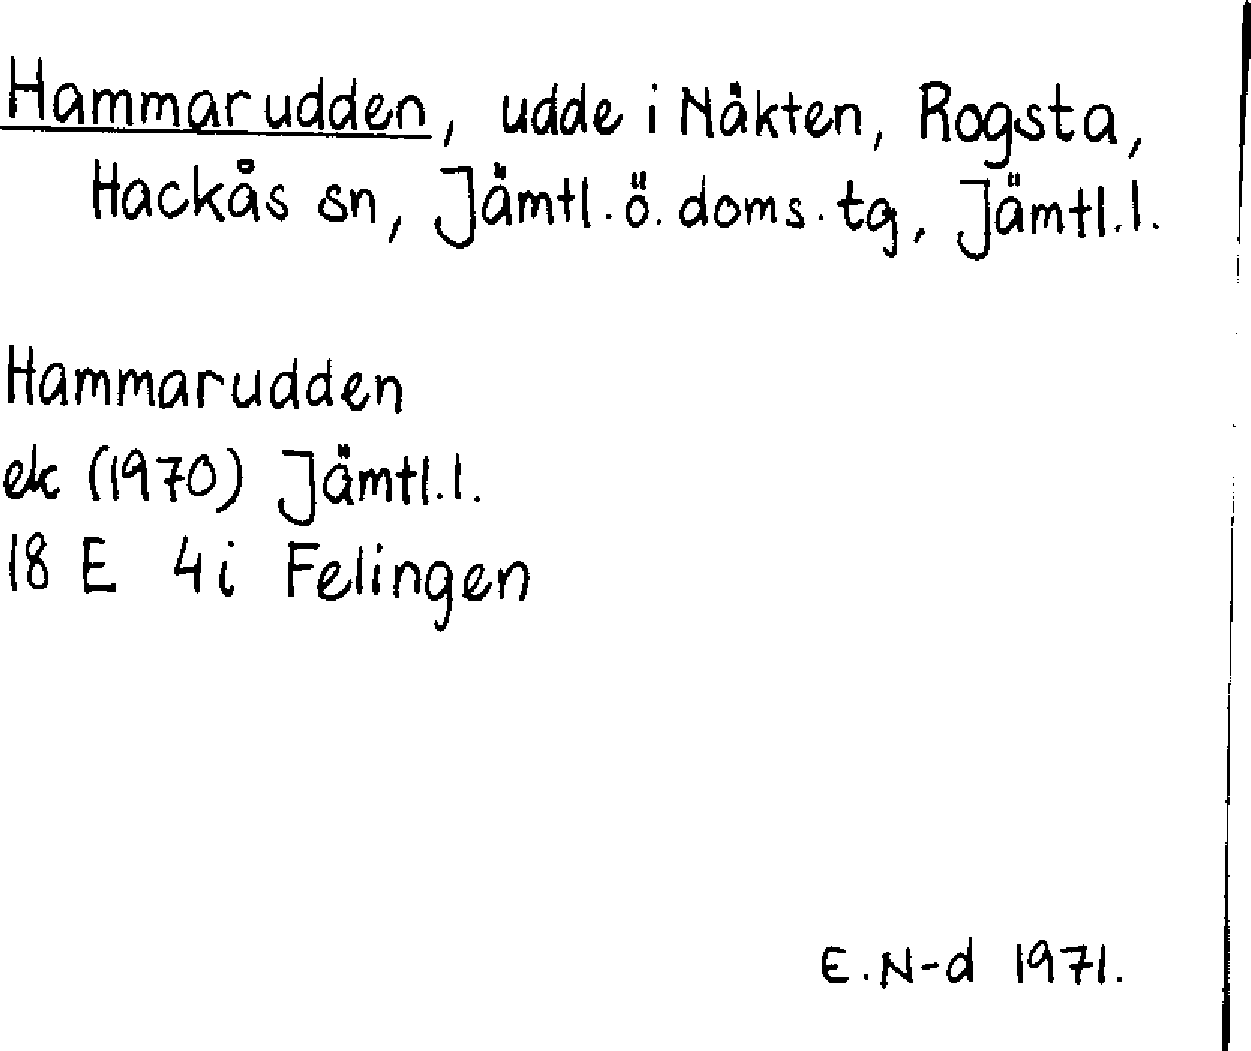 Hammarudden, udde i Näkten, Rogsta,
Hackås sn, Jämtl. ö. doms. tg, Jämtl. l.
Hammarudden
ek (1970) Jämtl. l.
18 E 4i Felingen
E. N-d 1971.